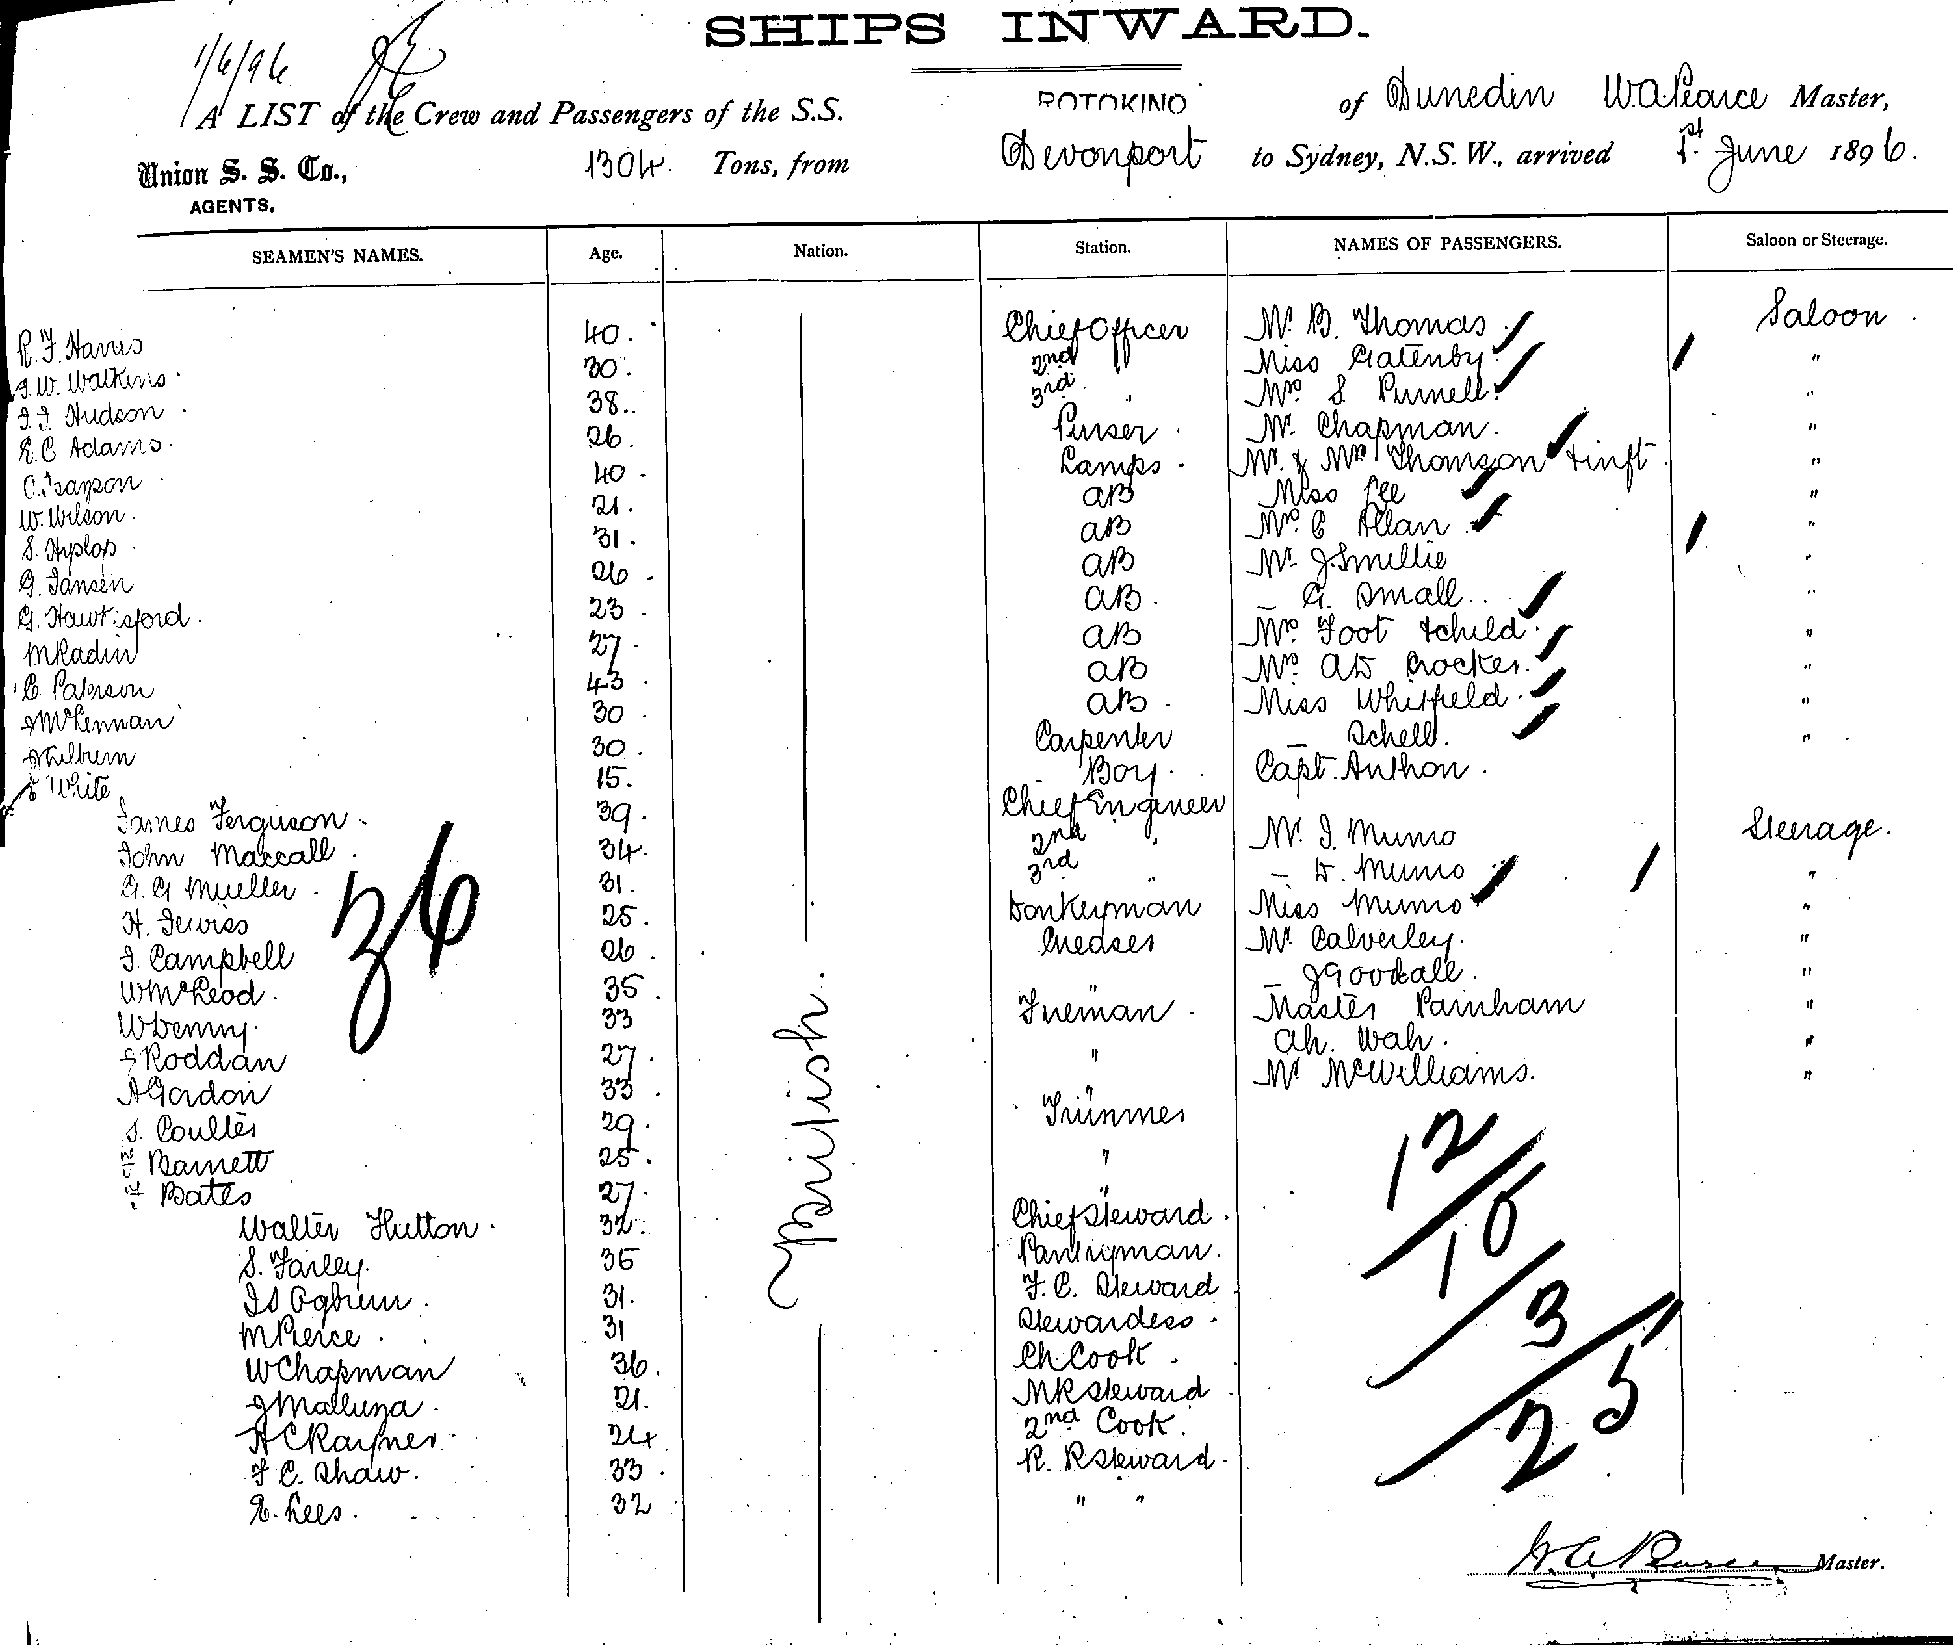 SHIPS INWARD.
1/6/96
A LIST of the Crew and Passengers of the S.S. ROTOKINO of Dunedin W.A. Pearce Master,
Union S. S. Co., 1304. Tons, from Devonport to Sydney, N.S.W., arrived 1st June 1896.
AGENTS.
SEAMEN'S NAMES. Age. Nation. Station. NAMES OF PASSENGERS. Saloon or Steerage.
R. F. Harris 40. Chief Officer Mr. B. Thomas Saloon
J. W. Watkins 30. 2nd " Miss Gatenby "
J. J. Hudson 38. 3rd " Mrs S Purnell "
E. C Adams. 26. Purser Mr. Chapman. "
40 Lamps. Mr. & Mrs Thomson & inft. "
W. Wilson. 21. AB Miss Lee "
S. Hyslop 31. AB Mrs C Allan "
G. Jansen 26 AB Mr. J. Smillie "
G. Hawkisford. 23 AB. – G. Small. "
M Radin 27 AB Mrs Foot & child "
C. Paterson 43 AB Mrs AD Crocker. "
McLennan 30 AB Miss Whitfield "
Kilburn 30. Carpenter – Schell. "
White 15. Boy. Capt. Anthon.
James Ferguson 39. Chief Engineer
John Maccall 34. 2nd " Mr. J. Munro Steerage.
G. G Mueller 31. 3rd " – D. Munro "
H. Jewiss 25. Donkeyman Miss Munro "
J. Campbell 26 Greaser Mr. Calverley. "
W McLeod. 35 " – J Goodall. "
W Denny. 33 Fireman Master Parnham "
J Roddan 27 " Ah. Wah. "
A Gordon 33 " Mr McWilliams. "
S. Coulter 29. Trimmer
Barnett 25. "
Bates 27. "
Walter Hutton 32. Chief Steward.
S. Farley. 35 Pantryman.
J S Ogburn. 31. F. C. Steward
M Pierce 31 Stewardess
W Chapman 36. Ch Cook
J Malluza 21. MR Steward
A C Rayner 24 2nd Cook.
F C. Shaw. 33 R. R Steward.
E. Lees. 32 " "
British.
36
12
10
3
25
W. A. Pearce Master.